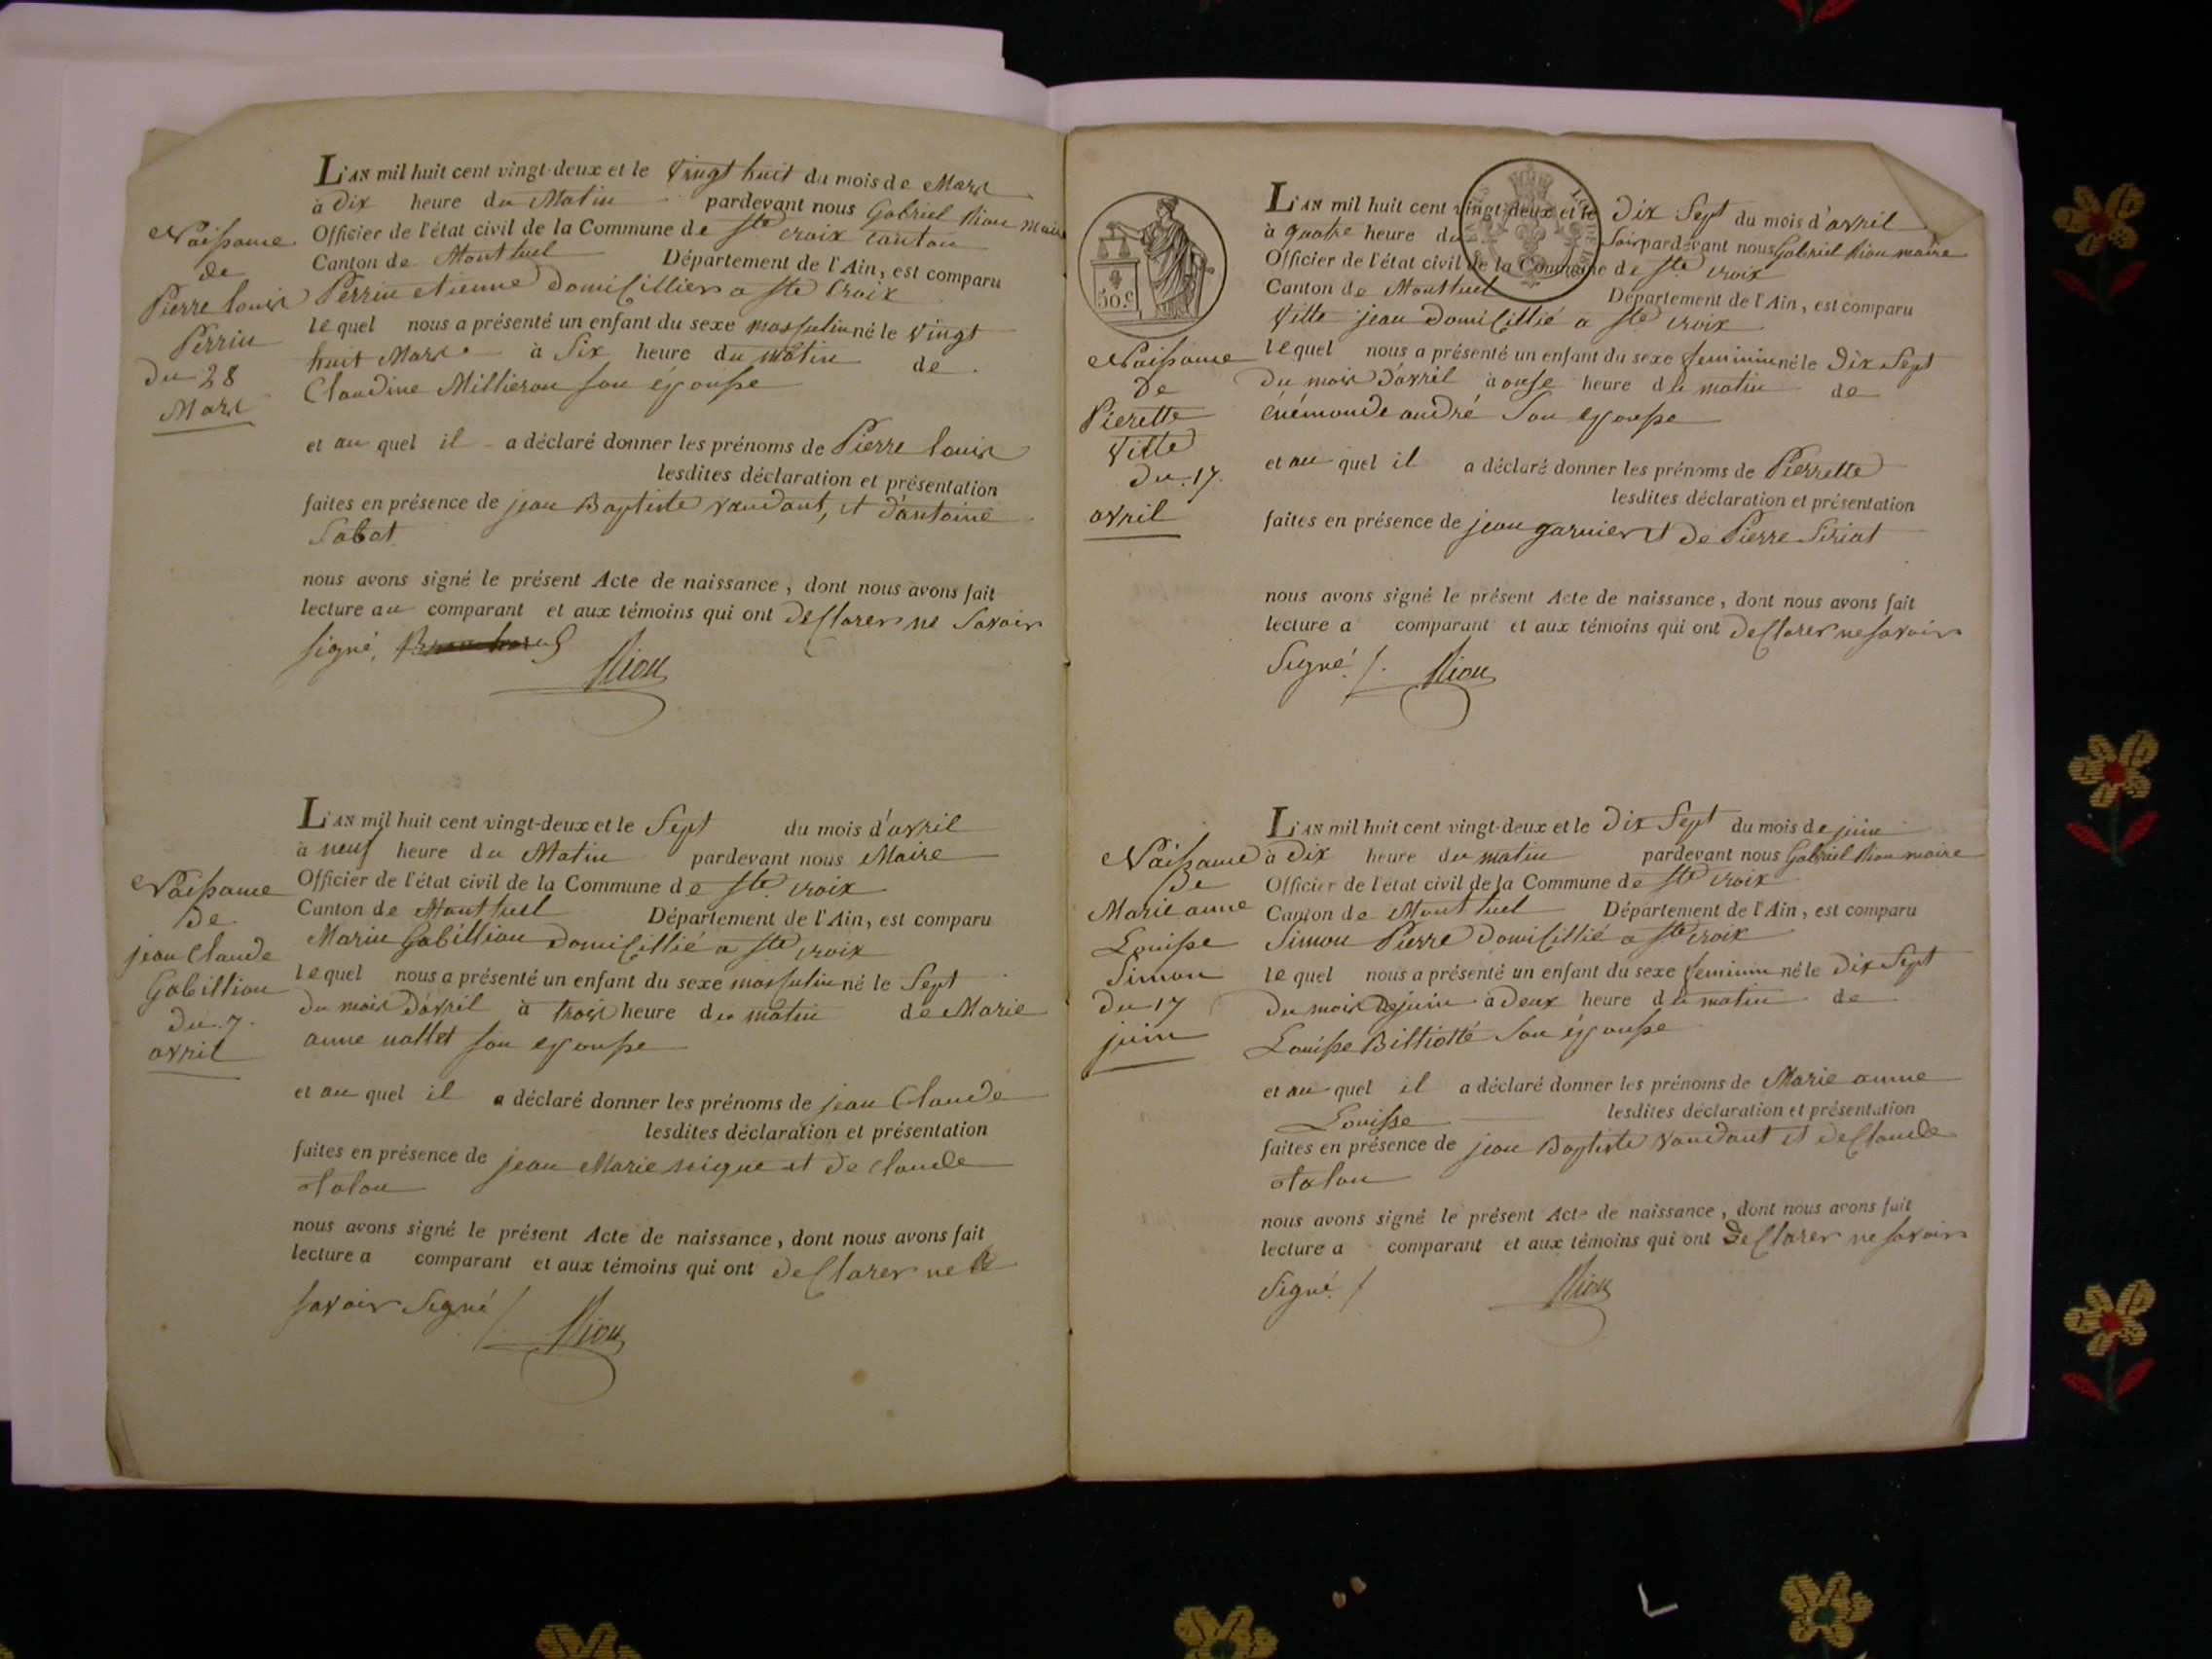 Naissance
de
Pierre louis
Perrin
du 28
Mars
L'AN mil huit cent vingt-deux et le vingt huit du mois de Mars
à dix heure du Matin pardevant nous Gabriel Riou maire
Officier de l'état civil de la Commune de ste croix canton
Canton de Montluel Département de l'Ain, est comparu
Perrin etienne domicillier a ste Croix
lequel nous a présenté un enfant du sexe masculin né le vingt
huit Mars à six heure du matin de
Claudine Millieron son épouse
et au quel il a déclaré donner les prénoms de Pierre louis
lesdites déclaration et présentation
faites en présence de jean Baptiste vaudant, et d'antoine
Sabot
nous avons signé le présent Acte de naissance, dont nous avons fait
lecture au comparant et aux témoins qui ont declarer ne savoir
signé,
Riou
Naissance
de
jean Claude
Gabillion
du 7.
avril
L'AN mil huit cent vingt-deux et le sept du mois d'avril
à neuf heure du Matin pardevant nous Maire
Officier de l'état civil de la Commune de ste croix
Canton de Montluel Département de l'Ain, est comparu
Marin Gabillion domicillié a ste croix
lequel nous a présenté un enfant du sexe masculin né le sept
du mois d'avril à trois heure du matin de Marie
anne nallet son epouse
et au quel il a déclaré donner les prénoms de jean Claude
lesdites déclaration et présentation
faites en présence de jean Marie nique et de claude
talon
nous avons signé le présent Acte de naissance, dont nous avons fait
lecture a comparant et aux témoins qui ont declarer ne
savoir signé /.
Riou
50.c
Naissance
de
Pierette
Vitte
du 17.
avril
L'AN mil huit cent vingt-deux et le dix sept du mois d'avril
à quatre heure du soir pardevant nous Gabriel Riou maire
Officier de l'état civil de la Commune de ste croix
Canton de Montluel Département de l'Ain, est comparu
Vitte jean domicillié a ste croix
lequel nous a présenté un enfant du sexe feminin né le dix sept
du mois d'avril à onse heure du matin de
énémonde andré son epouse
et au quel il a déclaré donner les prénoms de Pierrette
lesdites déclaration et présentation
faites en présence de jean garnier et de Pierre Siriat
nous avons signé le présent Acte de naissance, dont nous avons fait
lecture a comparant et aux témoins qui ont declarer ne savoir
signé /.
Riou
Naissance
de
Marie anne
Louisse
Simon
du 17
juin
L'AN mil huit cent vingt-deux et le dix sept du mois de juin
à dix heure du matin pardevant nous Gabriel Riou maire
Officier de l'état civil de la Commune de ste croix
Canton de Montluel Département de l'Ain, est comparu
Simon Pierre domicillié a ste croix
lequel nous a présenté un enfant du sexe feminin né le dix sept
du mois de juin à deux heure du matin de
Louisse Billiotté son épouse
et au quel il a déclaré donner les prénoms de Marie anne
Louisse lesdites déclaration et présentation
faites en présence de jean Baptiste vaudant et de Claude
talon
nous avons signé le présent Acte de naissance, dont nous avons fait
lecture a comparant et aux témoins qui ont declarer ne savoir
signé /
Riou